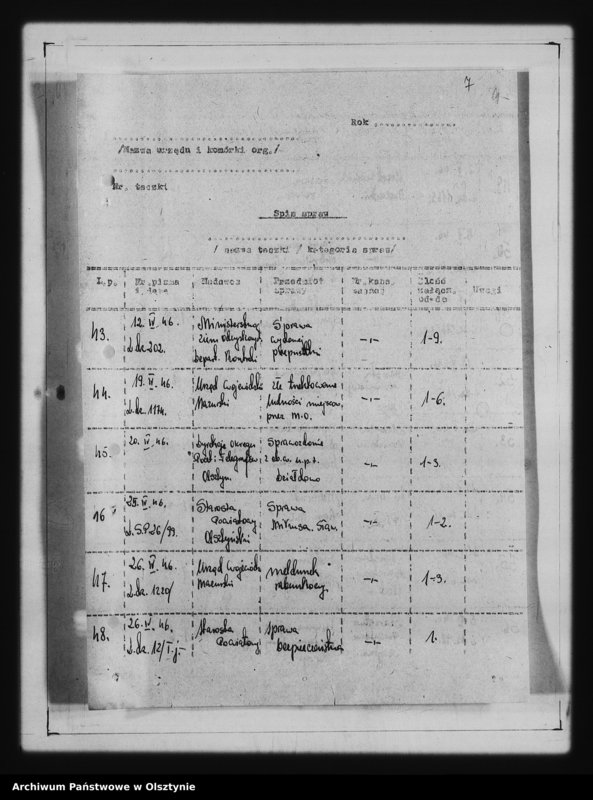 7
Rok ...............
/Nazwa urzędu i komórki org./
Nr. teczki
Spis spraw
/ nazwa teczki / kategoria spraw/
L.p. Nr.pisma i data Nadawca Przedmiot sprawy Nr. Ilość załącz. od-do Uwagi
43. 12. IV. 46. L.dz.202. Ministerstwo Ziem Odzyskanych Depart. Kontroli Sprawa wydania przepustki -„- 1-9.
44. 19. IV. 46. L.dz. 1174. Urząd Wojewódzki Mazurski złe traktowanie ludności miejscow. przez M.O. -„- 1-6.
45. 20. IV. 46. Dyrekcja Okręgu Poczt i Telegrafów Olsztyn. Sprawozdanie z ob.w. u.p.t. Działdowo -„- 1-3.
46 IV. 46. L.S.P.26/99. Starosta Powiatowy Olsztyński Sprawa -„- 1-2.
47. 26. IV. 46. L.dz. 1220/ Urząd Wojewódz. Mazurski meldunek rabunkowy. -„- 1-3.
48. 26. IV. 46. L.dz. 12/I.j.- Starosta Powiatowy sprawa bezpieczeństwa -„- 1.
Archiwum Państwowe w Olsztynie